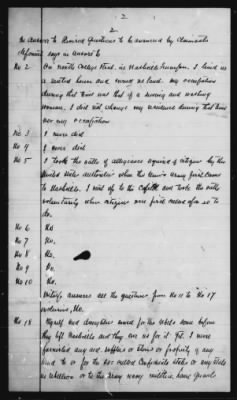 2
2
In Answer to Printed Questions to be answered by Claimants
Deponent says in answer to
No 2 On north College Street in Nashville Tennessee. I lived in
a rented house and owned no land. my occupation
during that time was that of a sewing and washing
woman. I did not change my residence during that time
nor my occupation
No 3 I never did
No 4 I never did
No 5 I took the oath of allegiance required of citizens by the
United States authorities when the Union Army first came
to Nashville. I went up to the Capitol and took the oath
voluntarily when citizens were first called upon so to
do.
No 6 No
No 7 No.
No 8 No.
No 9 No.
No 10 No.
Witness answers all the questions from No 11 to No 17
inclusive, No.
No 18 Myself and daughter the before
they left Nashville and they are for it yet. I never
furnished any aid, supplies or stores or property of any
kind to or for the so called Confederate States or any State
in rebellion or to the army navy militia, home guards